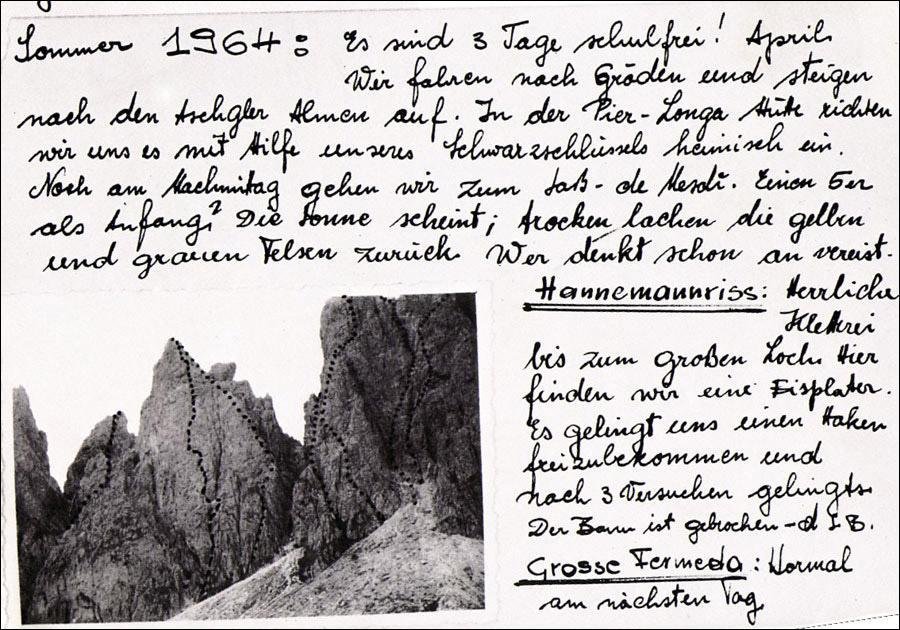 Sommer 1964: Es sind 3 Tage schulfrei! April.
Wir fahren nach Gröden und steigen
nach den Aschgler Almen auf. In der Pier-Longa Hütte richten
wir uns es mit Hilfe unseres Schwarzschlüssels heimisch ein.
Noch am Nachmittag gehen wir zum Saß-de Mesdi. Einen 5er
als Anfang? Die Sonne scheint; trocken lachen die gelben
und grauen Felsen zurück. Wer denkt schon an vereist.
Hannemannriss: Herrliche
Kletterei
bis zum großen Loch. Hier
finden wir eine Eisplatte.
Es gelingt uns einen Haken
freizubekommen und
nach 3 Versuchen gelingts.
Der Bann ist gebrochen - d I. B.
Grosse Fermeda: Normal
am nächsten Tag